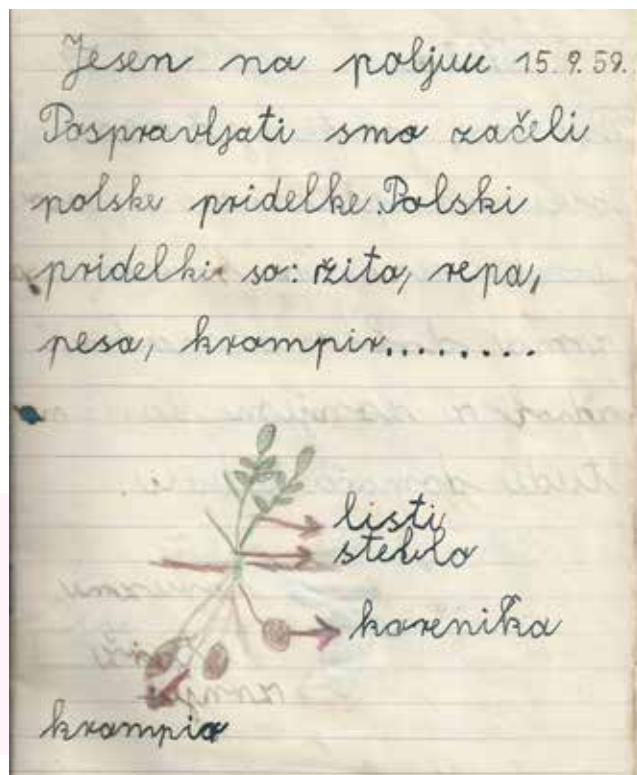 Jesen na poljuu 15.9.59.
Pospravljati smo začeli
polske pridelke. Polski
pridelki so: žita, repa,
pesa, krompir.........
listi
steblo
korenika
krompir